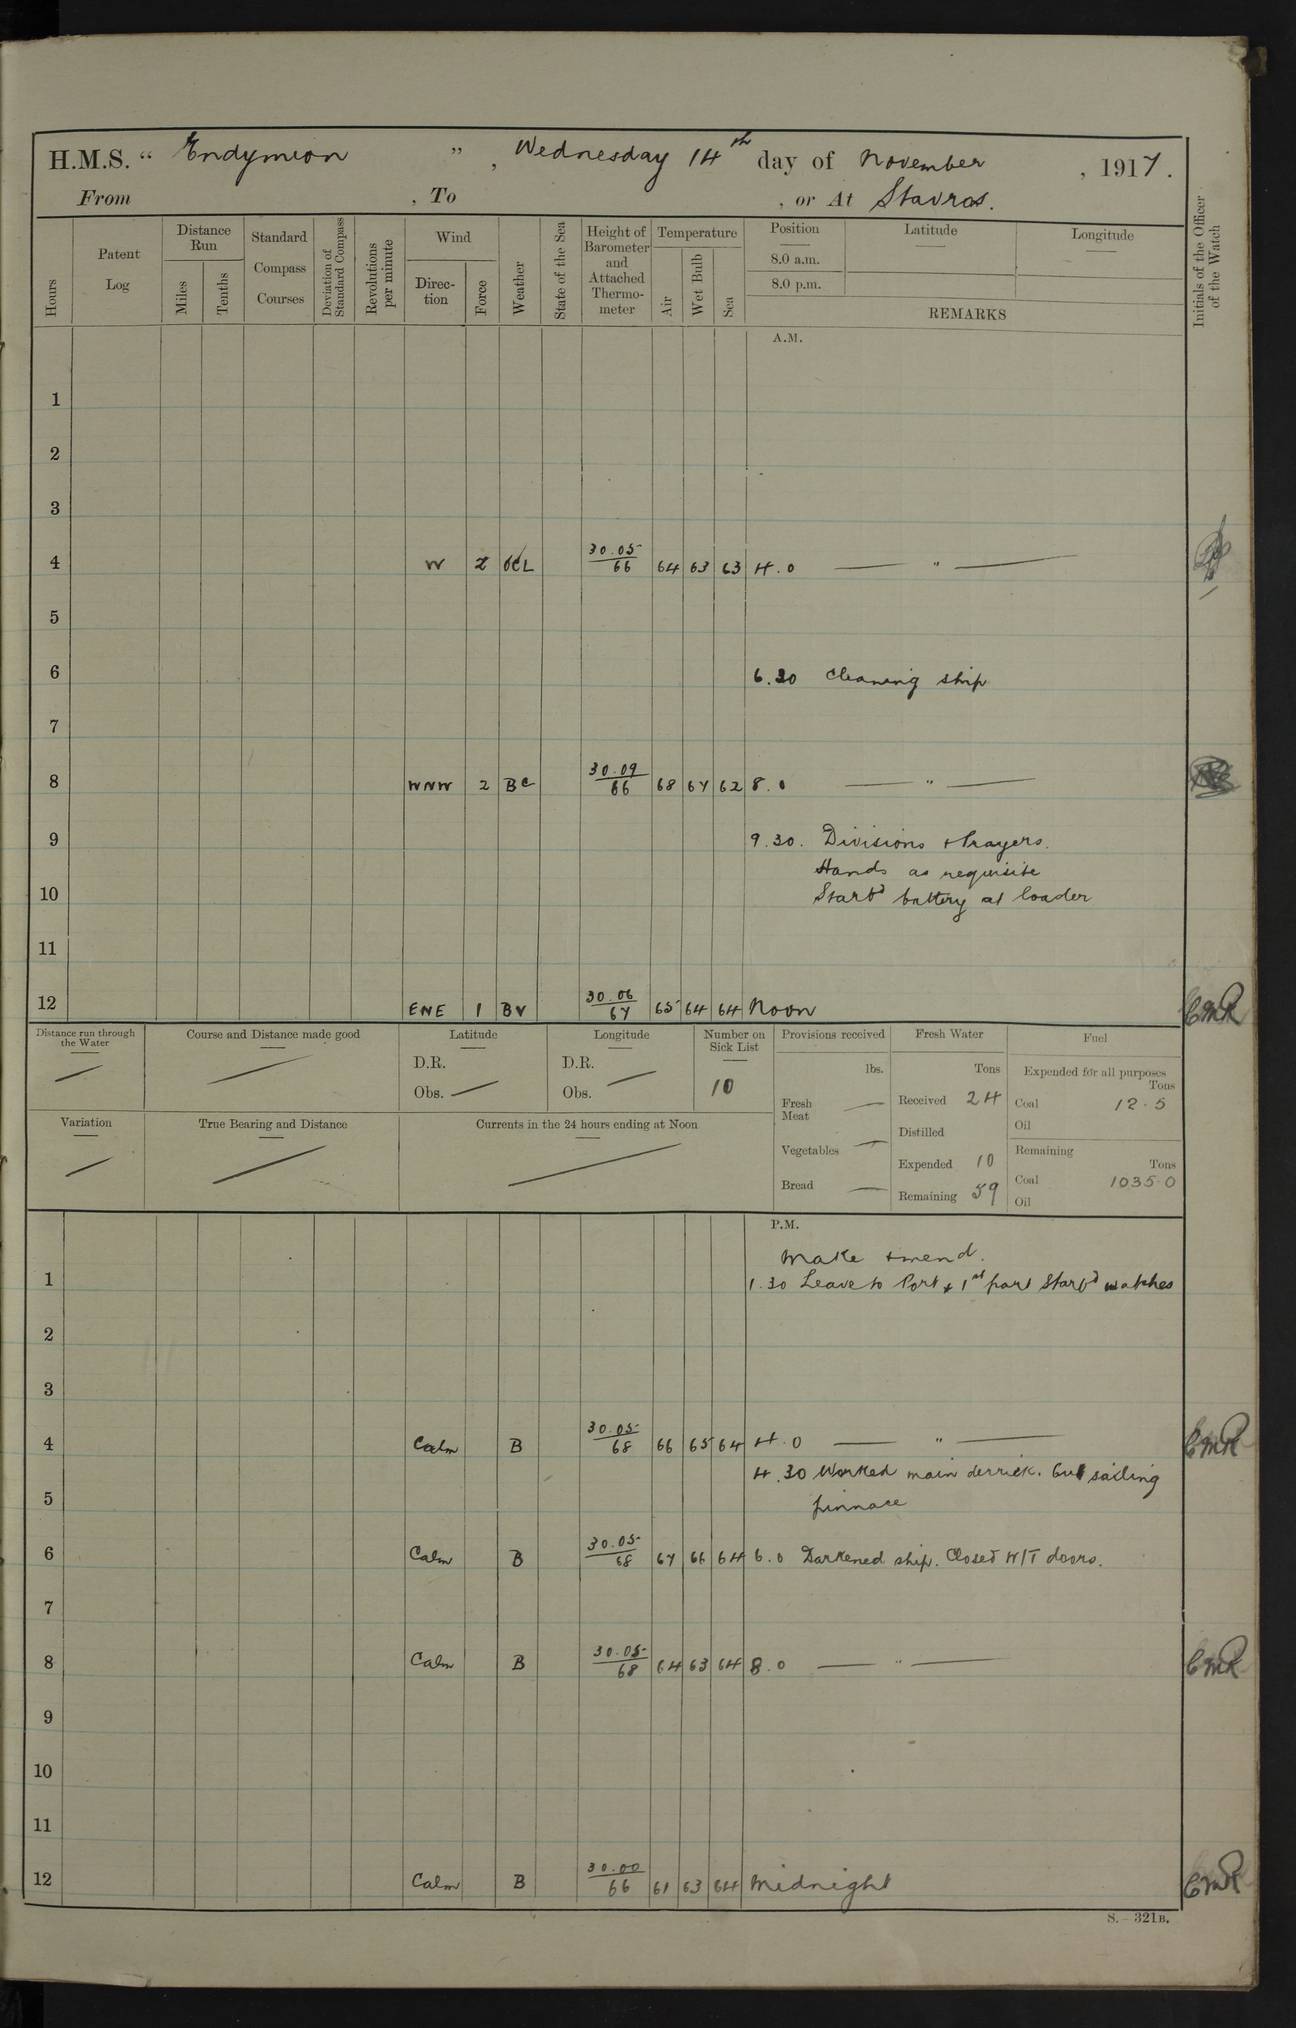 H.M.S. “ Endymion ” , Wednesday 14th day of November , 1917 .
From , To , or At Stavros.
Hours
Patent Log
Distance Run
Miles
Tenths
Standard Compass Courses
Deviation of Standard Compass
Revolutions per minute
Wind
Direction
Force
Weather
State of the Sea
Height of Barometer and Attached Thermometer
Temperature
Air
Wet Bulb
Sea
Position
8.0 a.m.
8.0 p.m.
Latitude
Longitude
REMARKS
Initials of the Officer of the Watch
A.M.
1
2
3
4 W 2 OCL 30.05/66 64 63 63 4.0 — " —
5
6 6.30 Cleaning ship
7
8 WNW 2 BC 30.09/66 68 67 62 8.0 — " —
9 9.30. Divisions & Prayers.
Hands as requisite
10 Starbd battery at loader
11
12 ENE 1 BV 30.06/67 65 64 64 Noon CMR
Distance run through the Water
Course and Distance made good
Latitude
D.R.
Obs.
Longitude
D.R.
Obs.
Number on Sick List
10
Provisions received
lbs.
Fresh Meat —
Vegetables —
Bread —
Fresh Water
Tons
Received 24
Distilled
Expended 10
Remaining 59
Fuel
Expended for all purposes
Tons
Coal 12.5
Oil
Remaining
Tons
Coal 1035.0
Oil
Variation
True Bearing and Distance
Currents in the 24 hours ending at Noon
P.M.
Make & mend.
1 1.30 Leave to Port & 1st part Starbd watches
2
3
4 Calm B 30.05/68 66 65 64 4.0 — " — CMR
4.30 Worked main derrick. Out sailing
5 pinnace
6 Calm B 30.05/68 67 66 64 6.0 Darkened ship. Closed W/T doors.
7
8 Calm B 30.05/68 64 63 64 8.0 — " — CMR
9
10
11
12 Calm B 30.00/66 61 63 64 Midnight CMR
S.—321B.